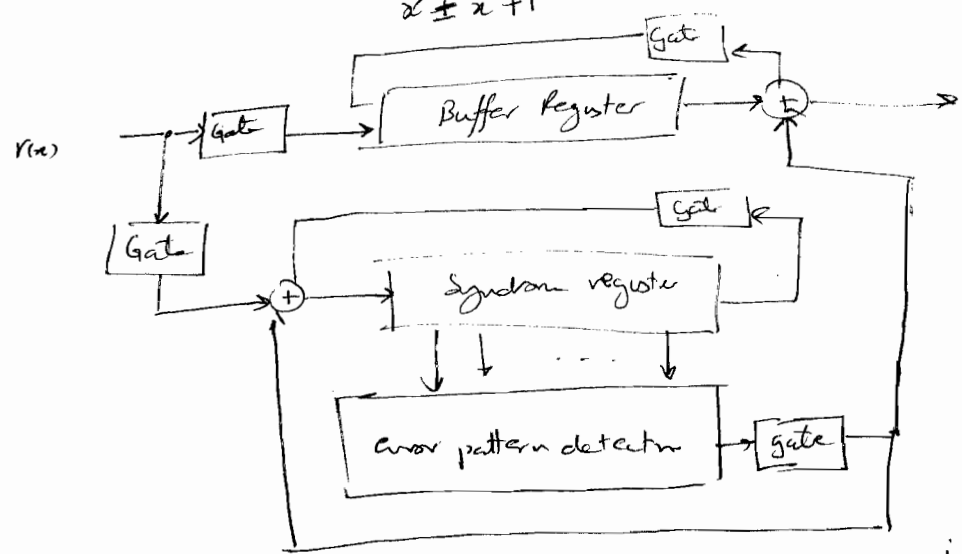 x ± x + 1
Gate
Buffer Register
Gate
+
r(x)
Gate
Gate
+
Syndrome register
. . .
error pattern detector
gate